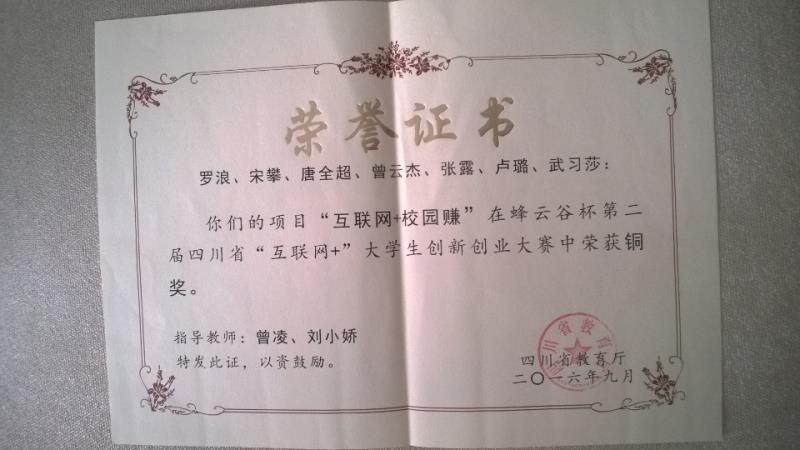 荣誉证书
罗浪、宋攀、唐全超、曾云杰、张露、卢璐、武习莎：
你们的项目“互联网+校园赚”在蜂云谷杯第二
届四川省“互联网+”大学生创新创业大赛中荣获铜
奖。
指导教师：曾凌、刘小娇
特发此证，以资鼓励。
四川省教育厅
二〇一六年九月